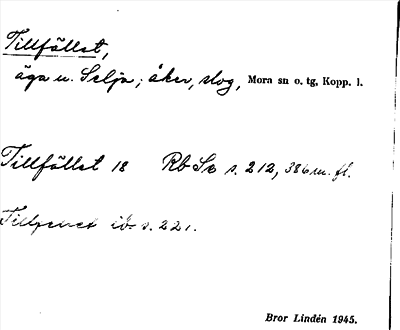 Tillfället,
äga u. Selja; åker, slog, Mora sn o. tg, Kopp. l.
Tillfället 18 Rb Se s. 212, 386 m. fl.
ib. s. 221.
Bror Lindén 1945.